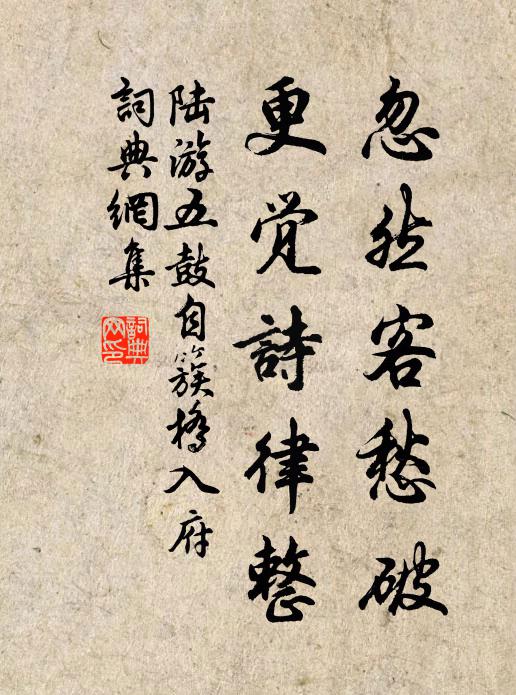 忽然客愁破
更觉詩律整
陆游五鼓自簇橋入府
詞典網集
詞典
网印